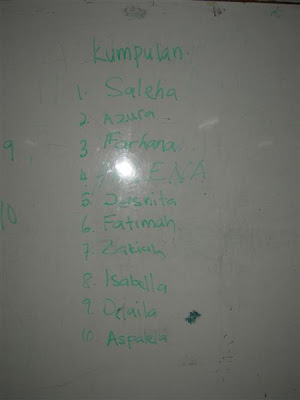 Kumpulan.
1. Saleha
2. Azura
9 3 Farhana
4
10. 5 Jusnita
6. Fatimah
7. Zakiah
8. Isabella
9. Delaila
10. Aspalela